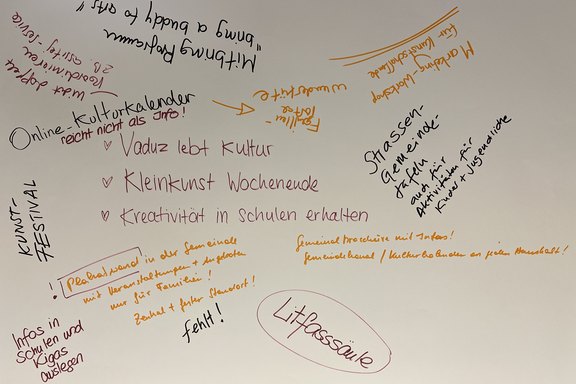 Mitbring Programm
"bring a buddy to arts"
Marketing-Workshop
für Kunstschaffende
nicht doppelt
ZB
Familien-
wundertüte
Online-Kulturkalender
reicht nicht als Info!
♥ Vaduz lebt Kultur
♥ Kleinkunst Wochenende
♥ Kreativität in Schulen erhalten
Strassen-
Gemeinde-
tafeln
auch für
Aktivitäten für
Kinder + Jugendliche
KUNST-
FESTIVAL
! Plakatwand in der Gemeinde
mit Veranstaltungen + Angeboten
nur für Familien!
Zentral + fester Standort!
fehlt!
Gemeindebroschüre mit Infos!
Gemeindekanal / Kulturkalender an jeden Haushalt!
Litfasssäule
Infos in
Schulen und
Kigas
auslegen